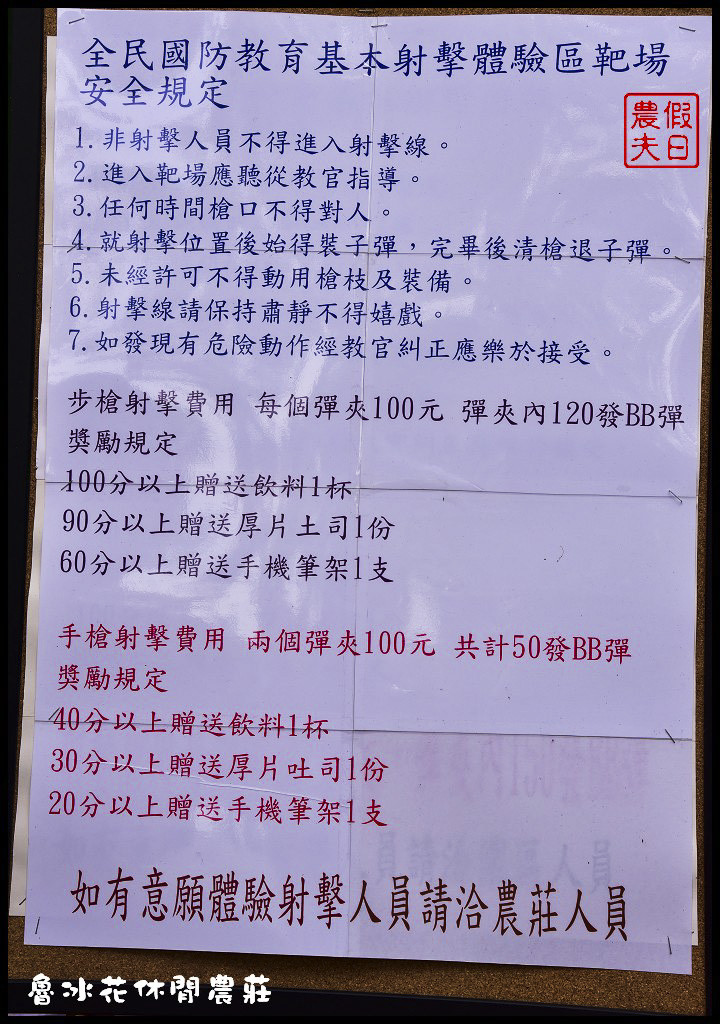 全民國防教育基本射擊體驗區靶場
安全規定
假日
農夫
1.非射擊人員不得進入射擊線。
2.進入靶場應聽從教官指導。
3.任何時間槍口不得對人。
4.就射擊位置後始得裝子彈，完畢後清槍退子彈。
5.未經許可不得動用槍枝及裝備。
6.射擊線請保持肅靜不得嬉戲。
7.如發現有危險動作經教官糾正應樂於接受。
步槍射擊費用 每個彈夾100元 彈夾內120發BB彈
獎勵規定
100分以上贈送飲料1杯
90分以上贈送厚片土司1份
60分以上贈送手機筆架1支
手槍射擊費用 兩個彈夾100元 共計50發BB彈
獎勵規定
40分以上贈送飲料1杯
30分以上贈送厚片吐司1份
20分以上贈送手機筆架1支
如有意願體驗射擊人員請洽農莊人員
魯冰花休閒農莊